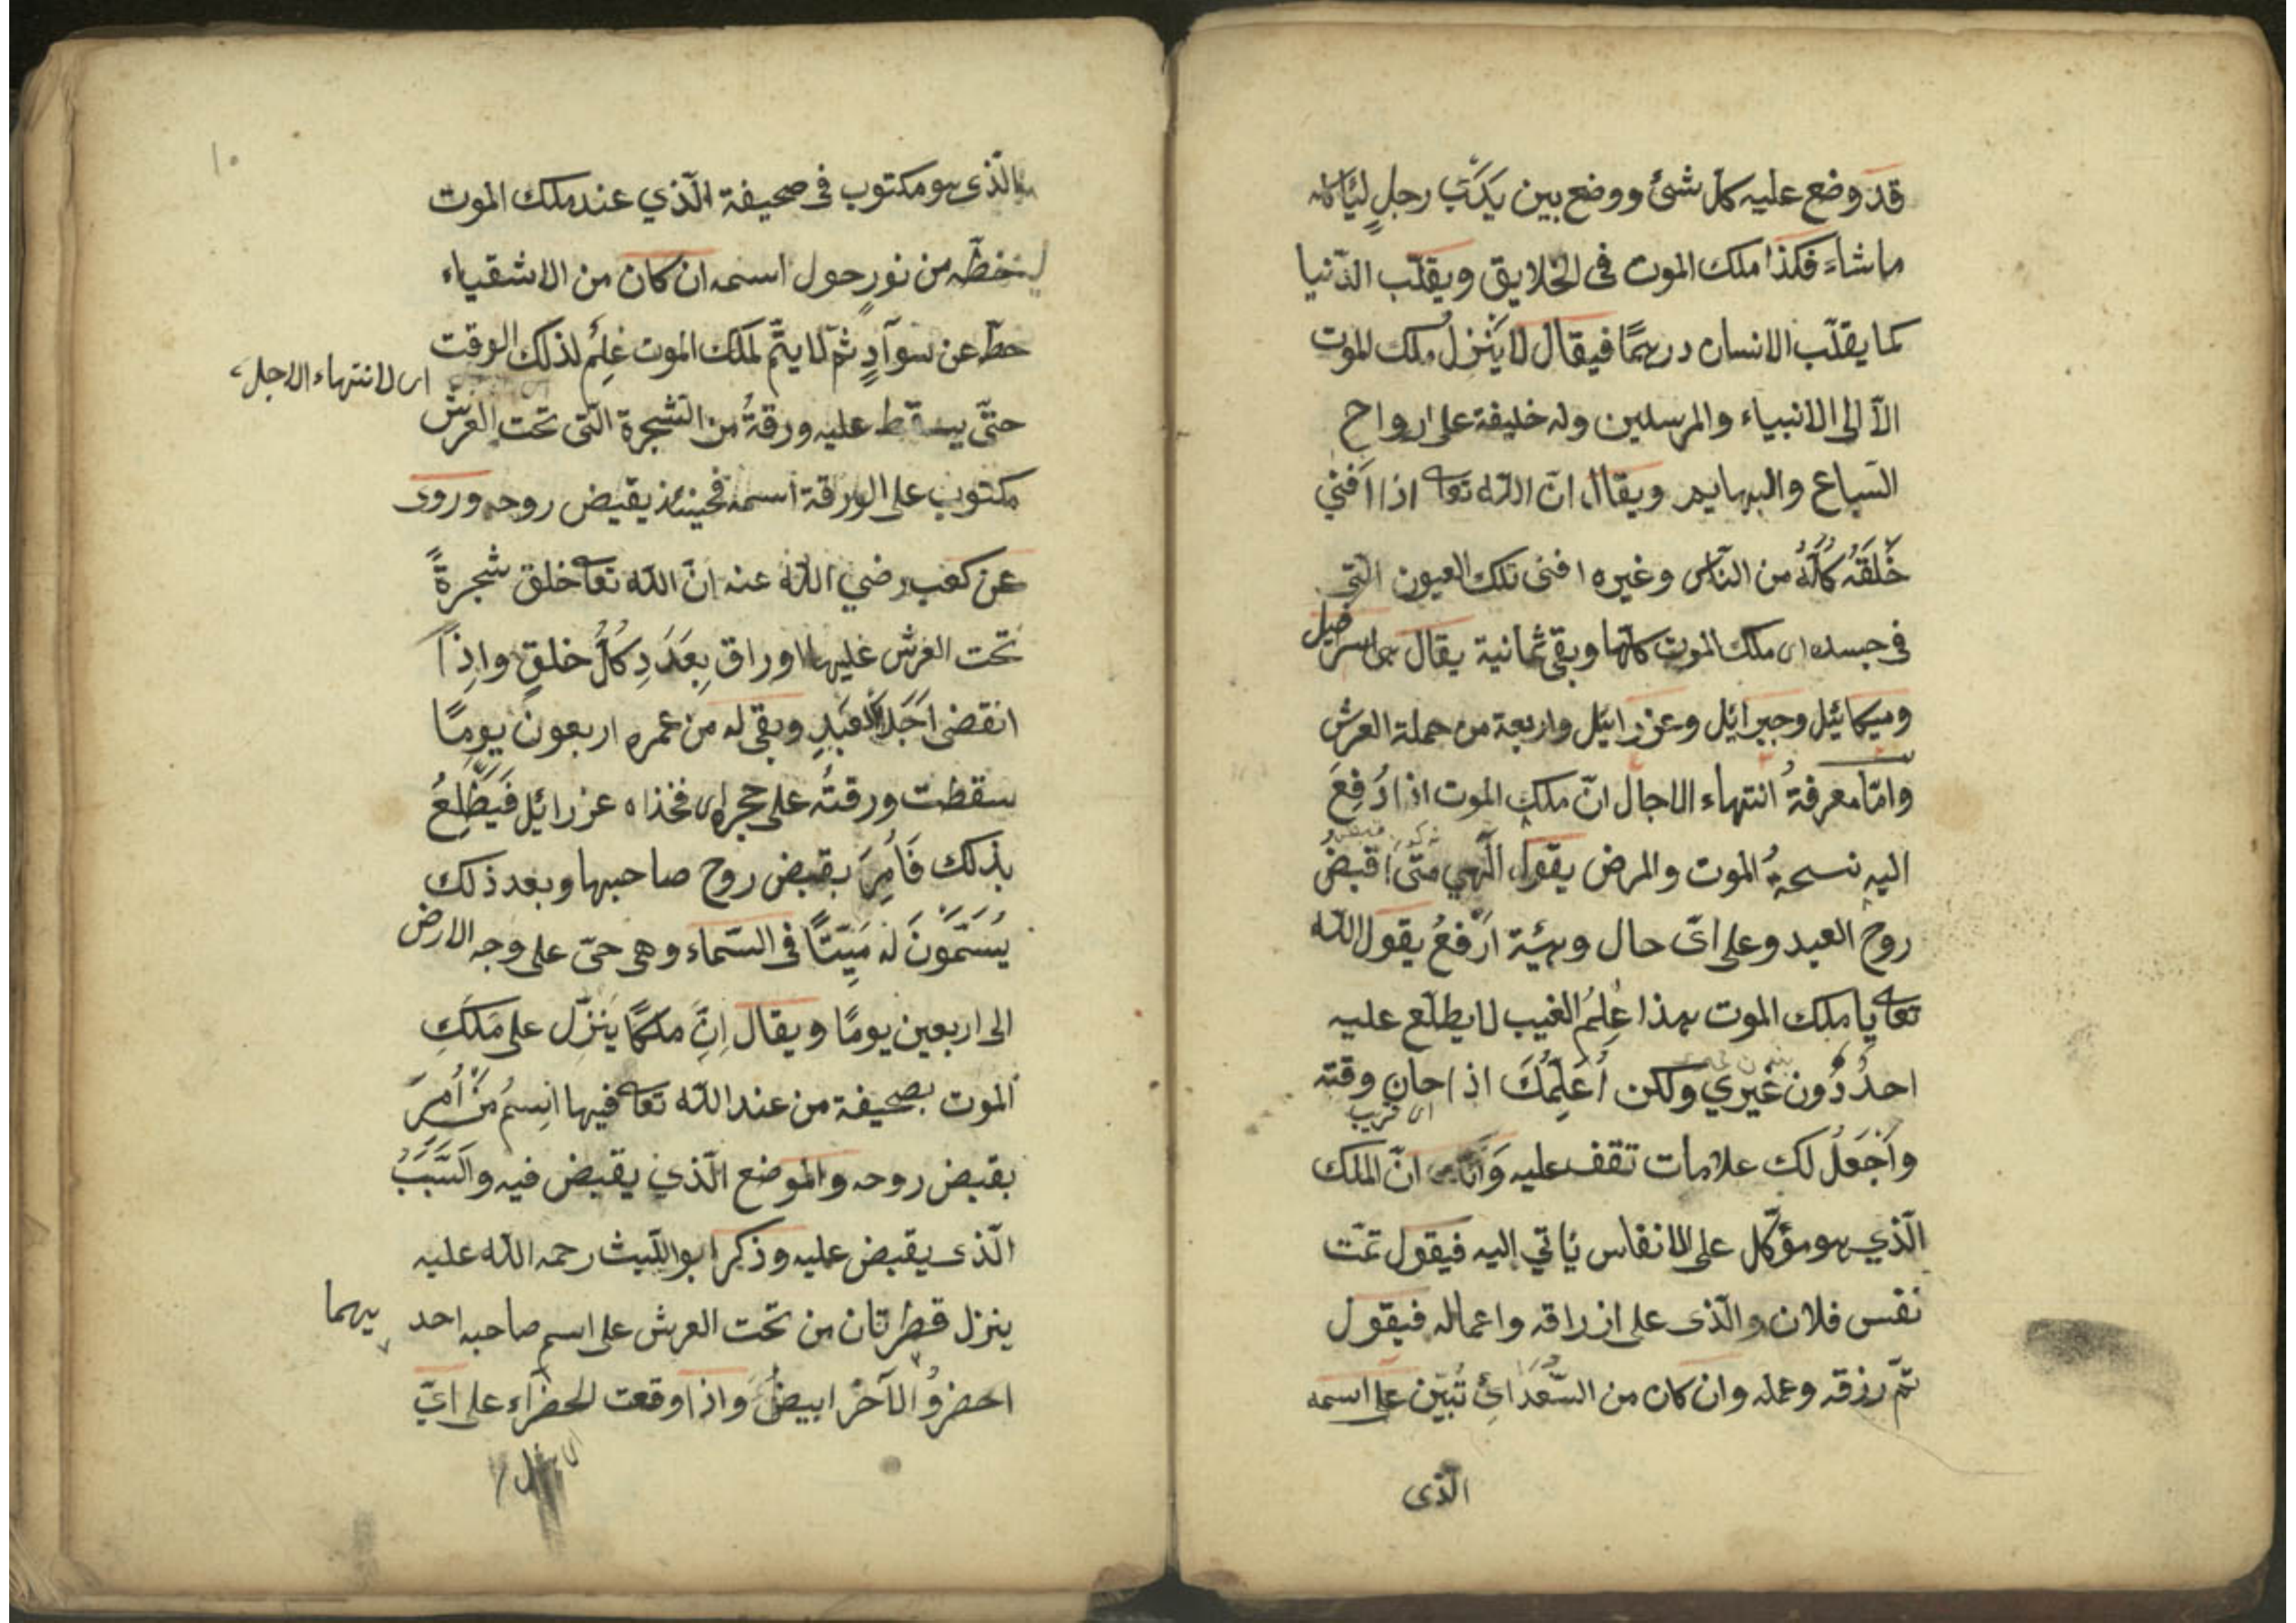 قد وضع عليه كل شئ ووضع بين يدي رجل لياكله
ما شاء فكذا ملك الموت فى الخلايق ويقلّب الدّنيا
كما يقلّب الانسان درهمًا فيقال لا ينزل ملك الموت
الّا الى الانبياء والمرسلين وله خليفة على ارواح
السّباع والبهايم ويقال انّ اللّه تعا اذا افنى
خَلقَهُ كُلَّهُ من النّاس وغيره افنى تلك العيون الّتى
فى جسده اى ملك الموت كلّها وبقى ثمانية يقال هى اسرافيل
وميكائيل وجبرائيل وعزرائيل واربعة من حملة العرش
وامّا معرفة انتهاء الاجال انّ ملك الموت اذا دُفِعَ
اليه نسخةُ الموت والمرض يقول الٓهي متى اقبضُ
روح العبد وعلى اىّ حال وهيئة ارفعُ يقول اللّه
تعا يا ملك الموت هذا عِلمُ الغيب لا يطلّع عليه
احدٌ دُون غيري ولكن اُعَلِّمُكَ اذا حان وقته
اى قريب
واَجْعَلُ لك علامات تقف عليه انّ الملك
الّذي هو مؤكّل على الانفاس يأتي اليه فيقول تمّت
نفس فلان والّذى على ازراقه واعماله فيقول
تمّ رزقه وعمله وان كان من السُّعَدَائِ تُبيّن على اسمه
الّذى
١٠
الّذى هو مكتوب فى صحيفة الّذي عند ملك الموت
خطّه من نورٍ حول اسمه ان كان من الاشقياء
خطّ عن سوادٍ ثمّ لا يتمّ لملك الموت عِلمُ لذلك الوقت
اى لانتهاء الاجل
حتّى يسقط عليه ورقةُ من الشّجرة الّتى تحت العرش
مكتوب على الورقة اسمه فحينئذ يقبض روحه وروى
عن كعب رضي اللّه عنه انّ اللّه تعا خلق شجرةً
تحت العرش عليها اوراق بِعَدَدِ كُلّ خلقٍ واِذا
انقضى اَجَلُ العَبدِ وبقى له من عمره اربعون يومًا
سقطت ورقتُه على حجره اى فخذاه عزرائيل فَيَطَّلِعُ
بذلك فَاُمِرَ بقبض روح صاحبها وبعد ذلك
يُسَمّونَ لَه مَيِّتًا فى السّماء وهى حىّ على وجه الارض
الى اربعين يومًا ويقال اِنَّ ملكًا يَنزّل على مَلَكِ
الموت بصحيفة من عند اللّه تعا فيها اِسمُ مَنْ اُمِرَ
بقبض روحه والموضع الّذي يقبض فيه والسَّبَبُ
الّذى يقبض عليه وذكر ابو اللّيث رحمه اللّه عليه
ينزل قطرتان من تحت العرش على اسم صاحبه احد
يهما
اخضرُ والآخَرُ ابيضُ واذا وقعت الخضراء على اىّ